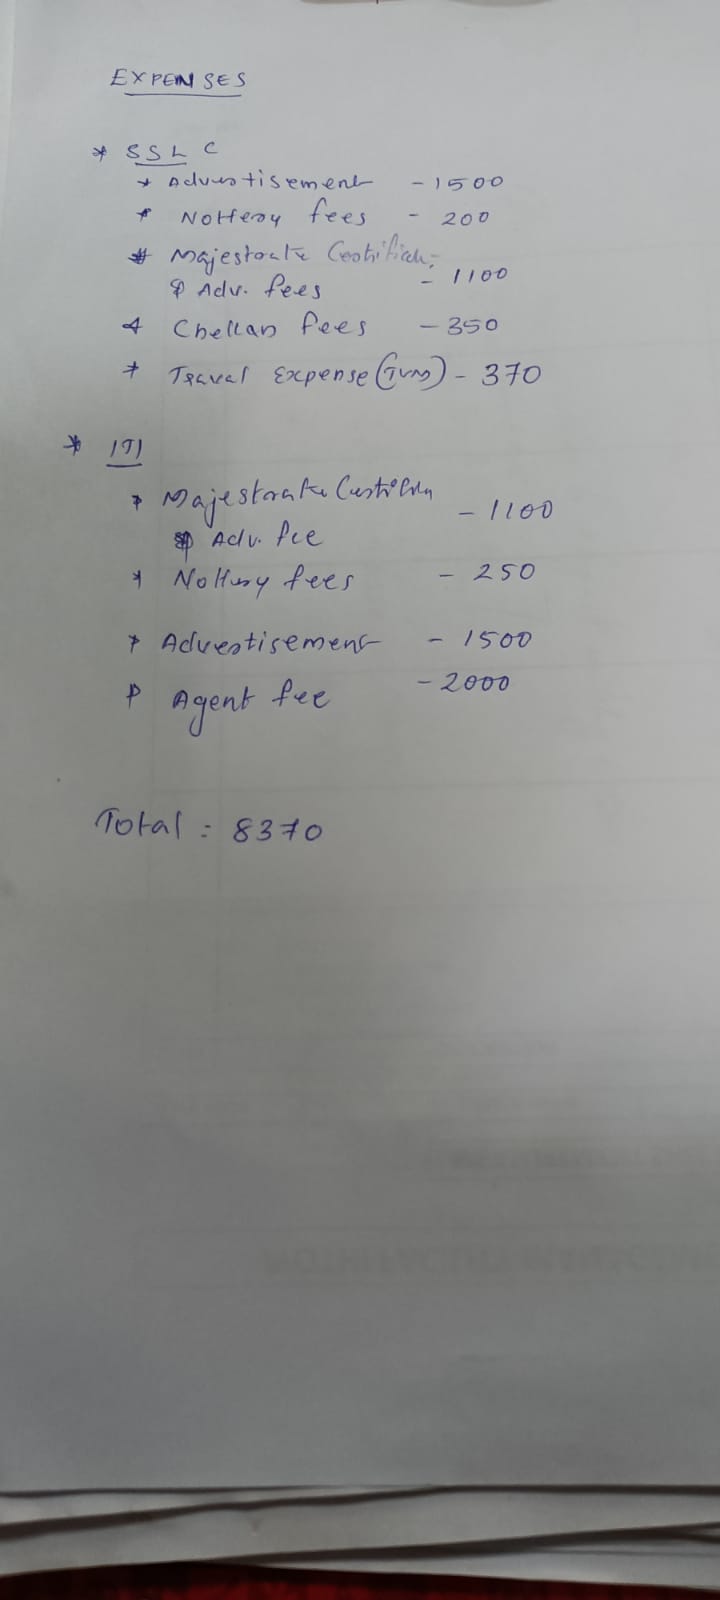 EXPENSES
* SSLC
* Advertisement - 1500
* Nottery fees - 200
* Majestrate Certificate
& Adv. fees - 1100
* Chellan fees - 350
* Traval Expense (TVM) - 370
* ITI
* Majestrate
& Adv. fee - 1100
* Nottery fees - 250
* Advertisement - 1500
* Agent fee - 2000
Total : 8370